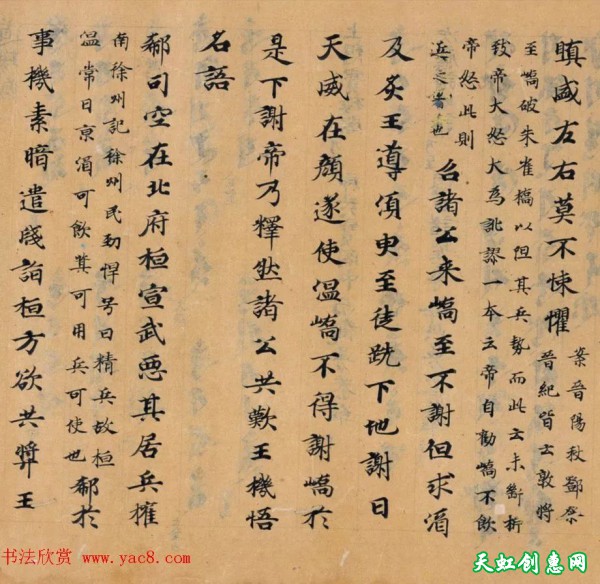 瞋盛左右莫不悚懼
案晉陽秋鄧粲
晉紀皆云敦將
至嶠破朱雀橋以阻其兵勢而此云未斷析
致帝大怒大為訛謬一本云帝自勸嶠不飲
帝怒此則
之也
召諸公来嶠至不謝但求酒
及炙王導須臾至徒跣下地謝曰
天威在顏遂使温嶠不得謝嶠於
是下謝帝乃釋然諸公共歎王機悟
名語
郗司空在北府桓宣武惡其居兵權
南徐州記徐州民勁悍号曰精兵故桓
温常曰京酒可飲箕可用兵可使也
郗於
事機素暗遣牋詣桓方欲共弉王
书法欣赏 www.yac8.com
天虹创惠网